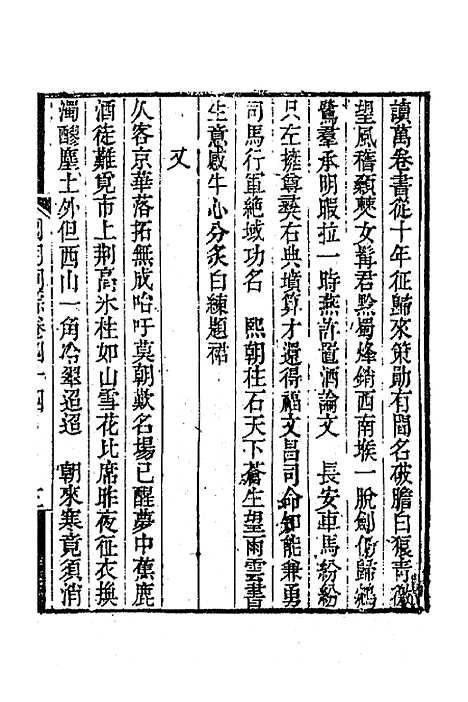 讀萬卷書從十年征歸來策勛有聞名破膽白狼青徼
望風稽顙僰女髽君黔蜀烽銷西南堠一脫劍俯歸鵷
鷺羣承明暇拉一時燕許置酒論文 長安車馬紛紛
只左擁尊彝右典墳算才還得福文昌司命知能兼勇
司馬行軍絕域功名 熙朝柱石天下蒼生望雨雲書
生意感牛心分炙白練題裙
又
久客京華落拓無成咍吁莫朝歎名場已醒夢中蕉鹿
酒徒難覓市上荆高氷柱如山雪花比席昨夜征衣換
濁醪塵土外但西山一角冷翠迢迢 朝來寒竟須消
國朝詞綜卷四十四